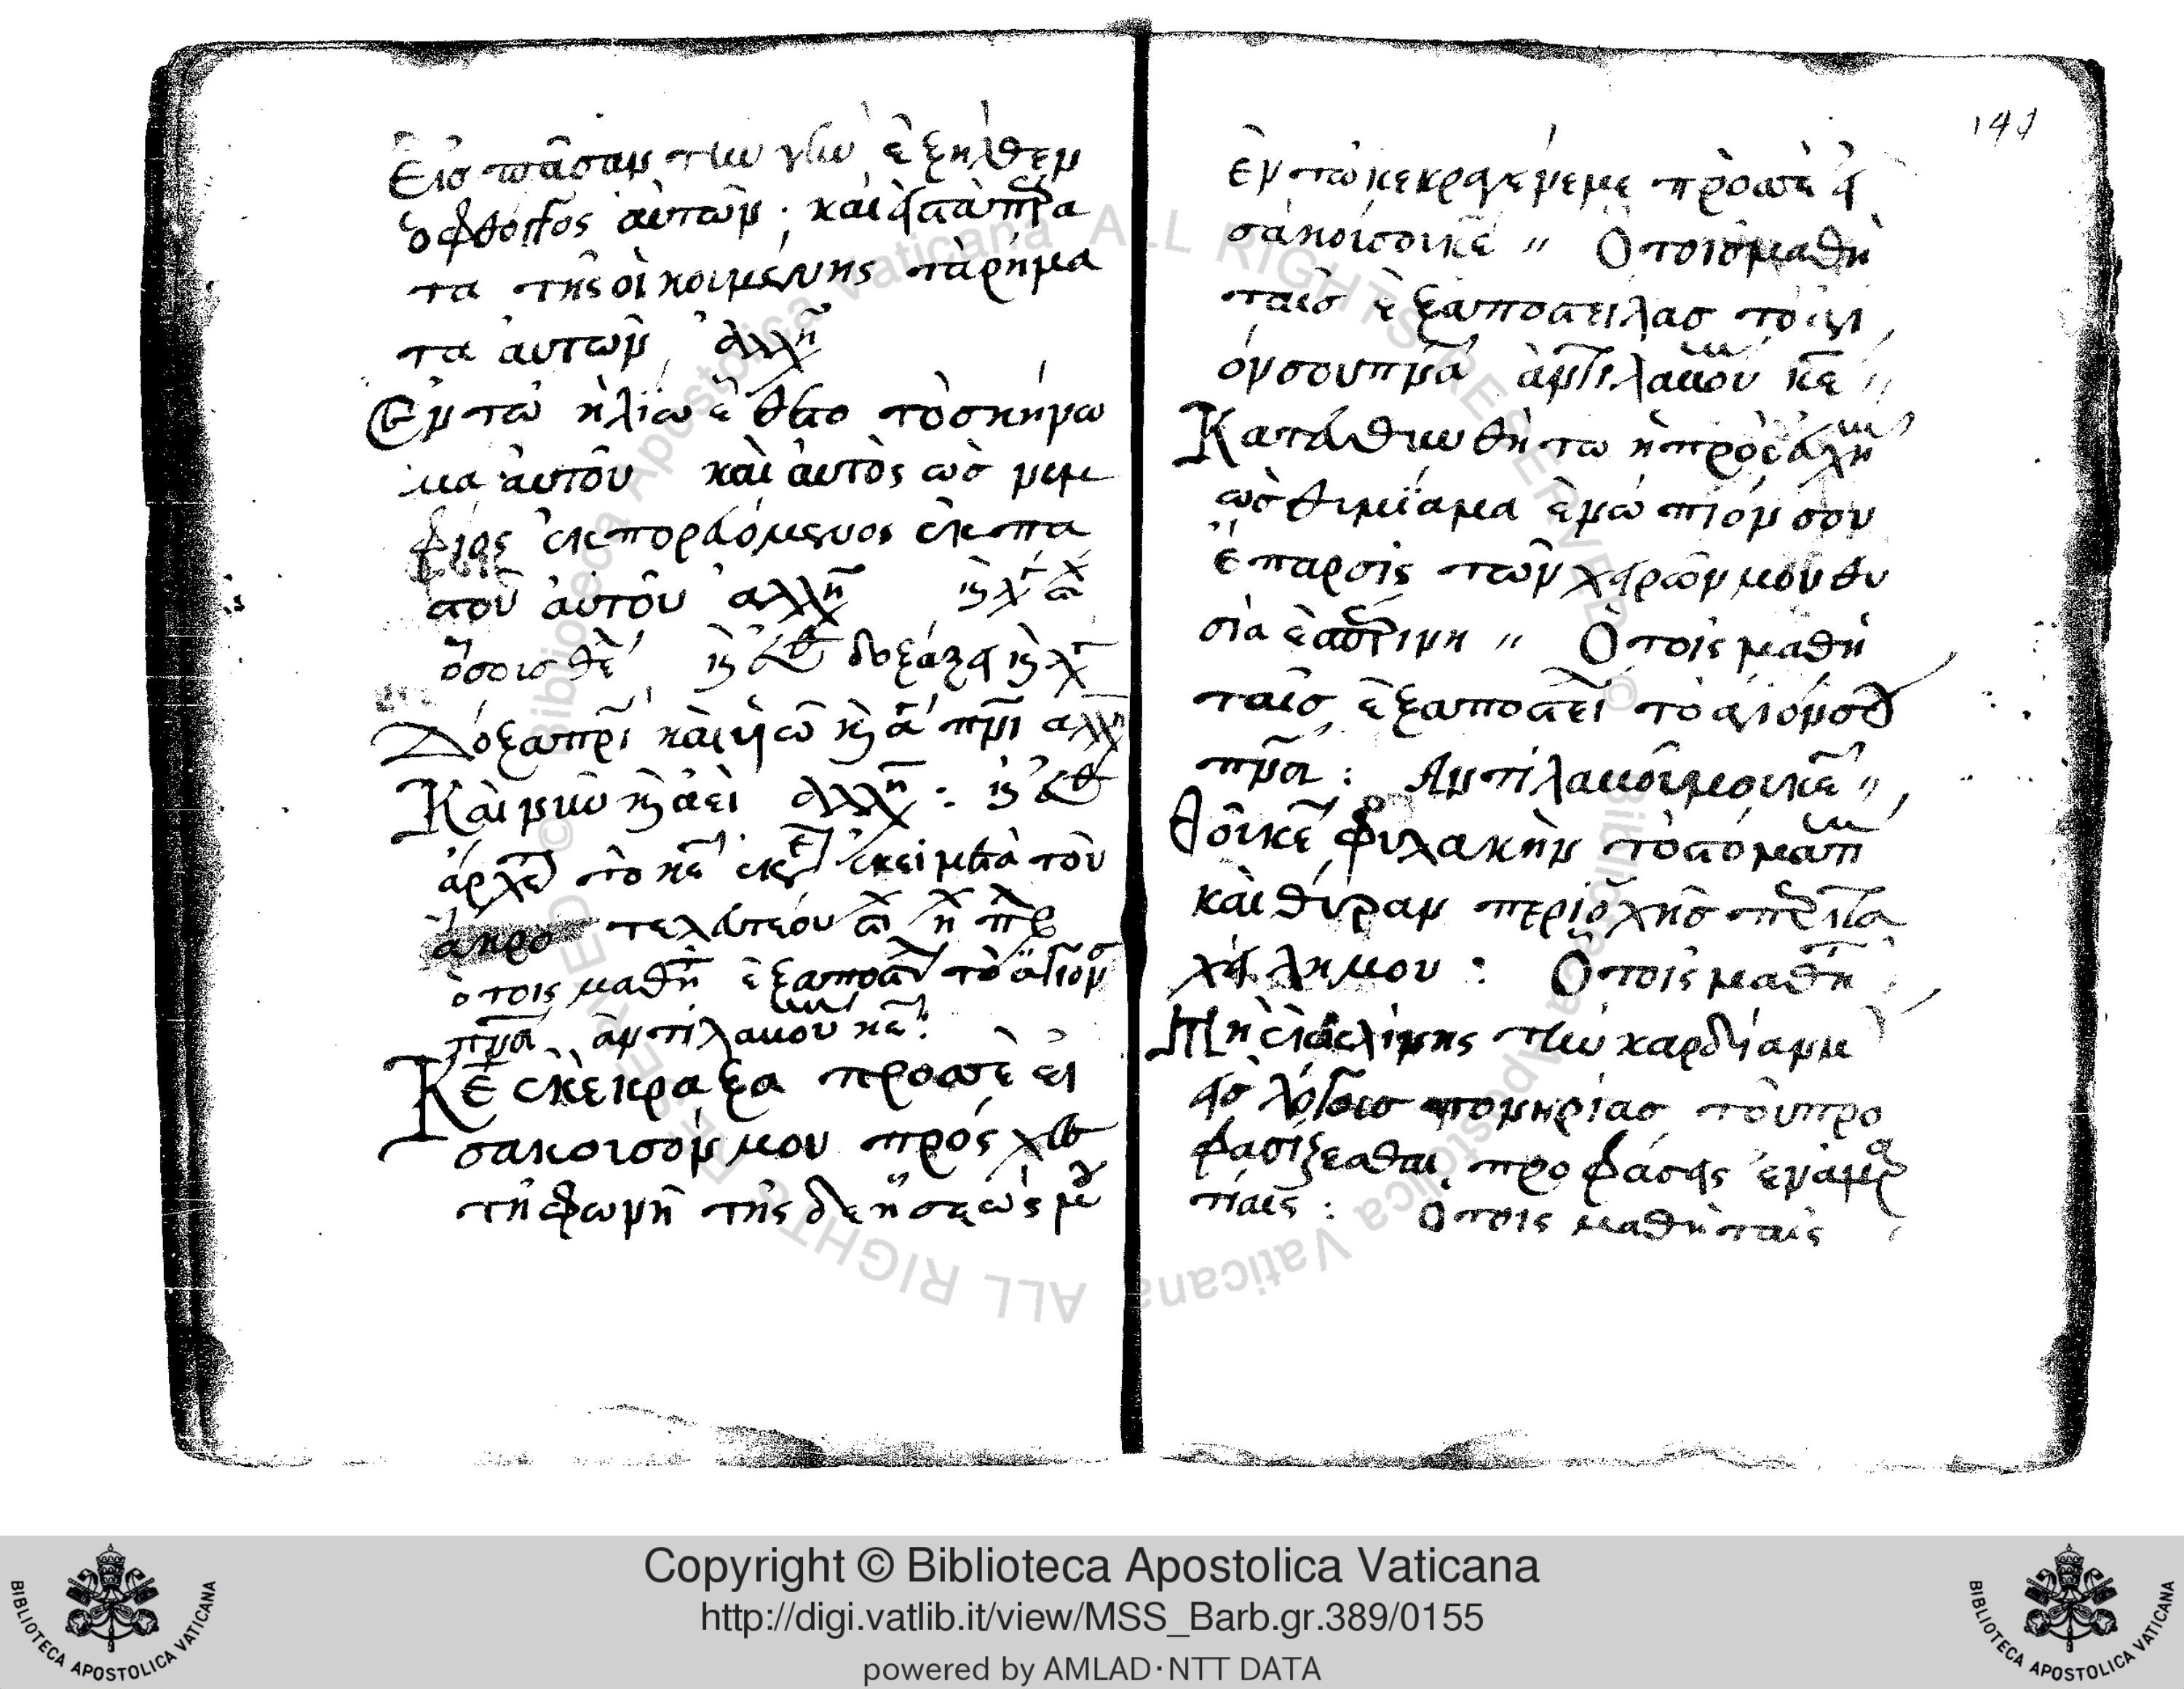 Εἰσ πᾶσαν τὴν γῆν ἐξῆλθεν
ὁ φθόγγος ἀυτῶν· καὶ εἰς τὰ πέρα
τα τῆς οἰκουμένης τὰ ρήμα
τα ἀυτῶν, ἀλλη
Ἐν τῶ ἡλίω ἔθετο τὸ σκήνω
μα ἀυτοῦ καὶ ἀυτὸς ὡσ νυμ
φίος ἐκπορευόμενος ἐκ πα
στοῦ ἀυτοῦ ἀλλη
δοξάζει
Δόξα πρι καὶ υιω κ α πνι αλλη
Καὶ νῦν κ ἀεὶ ἀλλη :
τὸ κε εκε ἐκεῖ μετὰ τὸν
ἀκρο τελεύτεον
ὁ τοις μαθη ἐξαποστ τὸ ἅγιον σ
πνα ἀντιλαμου κε :
Κε ἐκέκραξα προσσὲ εἰ
σάκοισόν μου πρόσχες
τῆ φωνῆ τῆς δεήσεώς μου
147
ἐν τῶ κεκραγέναιμε πρὸσσὲ εἰ
σάκοισοικε " Ὁ τοισμαθη
ταισ ἐξαποστείλας το αγι
όνσουπνα ἀντιλαμου κε "
Κατευθυνθήτω ἡ προσε
ὡσ θιμίαμα ἐνώπιόν σου
ἔπαρσις τῶν χειρῶν μου θυ
σία ἐσπερινη " Ὁ τοις μαθη
ταῖσ ἐξαποστει τὸ αγιόνσου
πνα : Ἀντιλαμουμεσικε "
Θοῦ κε φυλακὴν τὸ στόματι
καὶ θύραν περιοχῆσ περι τα
χείλη μου : Ὁ τοις μαθη
Μὴ ἐκκλίνης τὴν καρδίαν μου
εἰσ λόγουσ πονηρίας τοῦ προ
φασίζεσθαι προφάσεις ἐν ἁμαρ
τίαις : Ὁ τοις μαθηταις
ALL RIGHTS RESERVED © Biblioteca Apostolica Vaticana
Copyright © Biblioteca Apostolica Vaticana
http://digi.vatlib.it/view/MSS_Barb.gr.389/0155
powered by AMLAD·NTT DATA
BIBLIOTECA APOSTOLICA VATICANA
BIBLIOTECA APOSTOLICA VATICANA